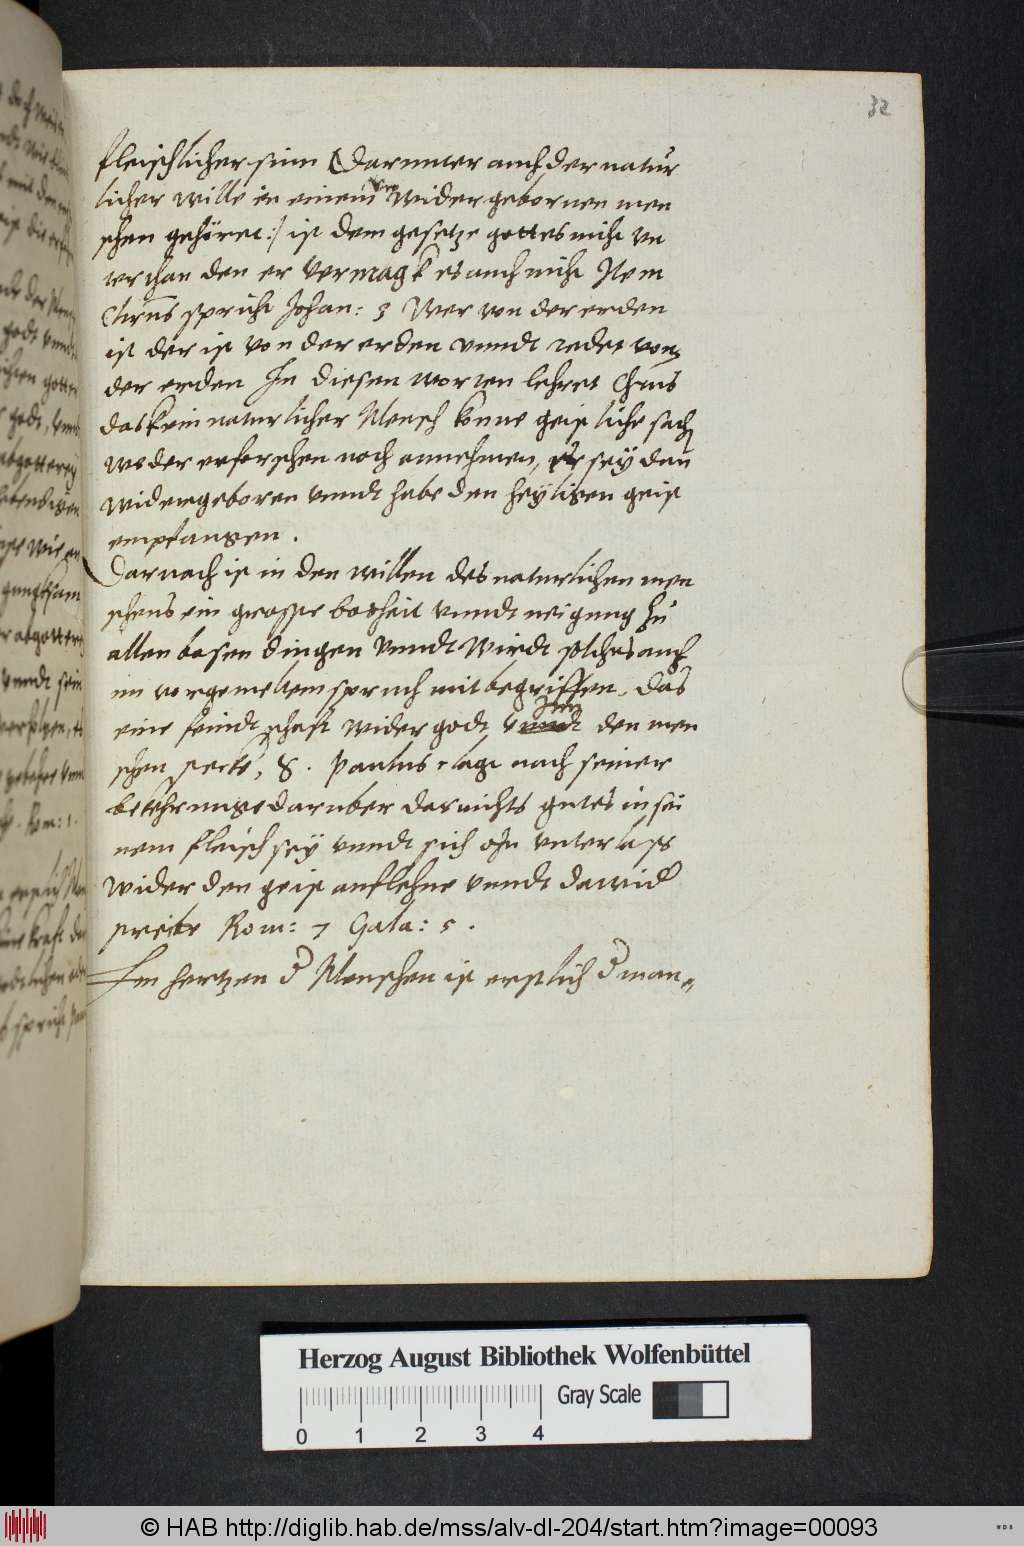 32
fleischlicher sinn (Darunter auch der natur
licher wille in einem widergebornen men
schen gehöret:) ist dem gesetze gottes nicht un
terthan den er vermagk es auch nicht Item
Chrus spricht Johan: 3 Wer von der erden
ist der ist von der erden vnndt redet von
der erden In diesen worten lehret Chrus
das kein naturlicher Mensch konne geistliche sach
weder erforschen noch annehmen, er sey dan
widergeboren vnndt habe den heyligen geist
empfangen.
Darnach ist in den willen des naturlichen men
schens ein grosse bosheit vnndt neigung zu
allen bosen dingen vnndt wirdt solches auch
im vorgemeltem spruch mit begriffen, das
eine feindtschafft wider godt in den men
schen stecke, S. Paulus klagt nach seiner
bekehrunge daruber das nichts gutes in sei
nem fleisch sey vnndt sich ohn vnterlass
wider den geist aufflehne vnndt dawid
streite Rom: 7 Gala: 5.
Im hertzen d Menschen ist erstlich d man=
Herzog August Bibliothek Wolfenbüttel
Gray Scale
0 1 2 3 4
© HAB http://diglib.hab.de/mss/alv-dl-204/start.htm?image=00093